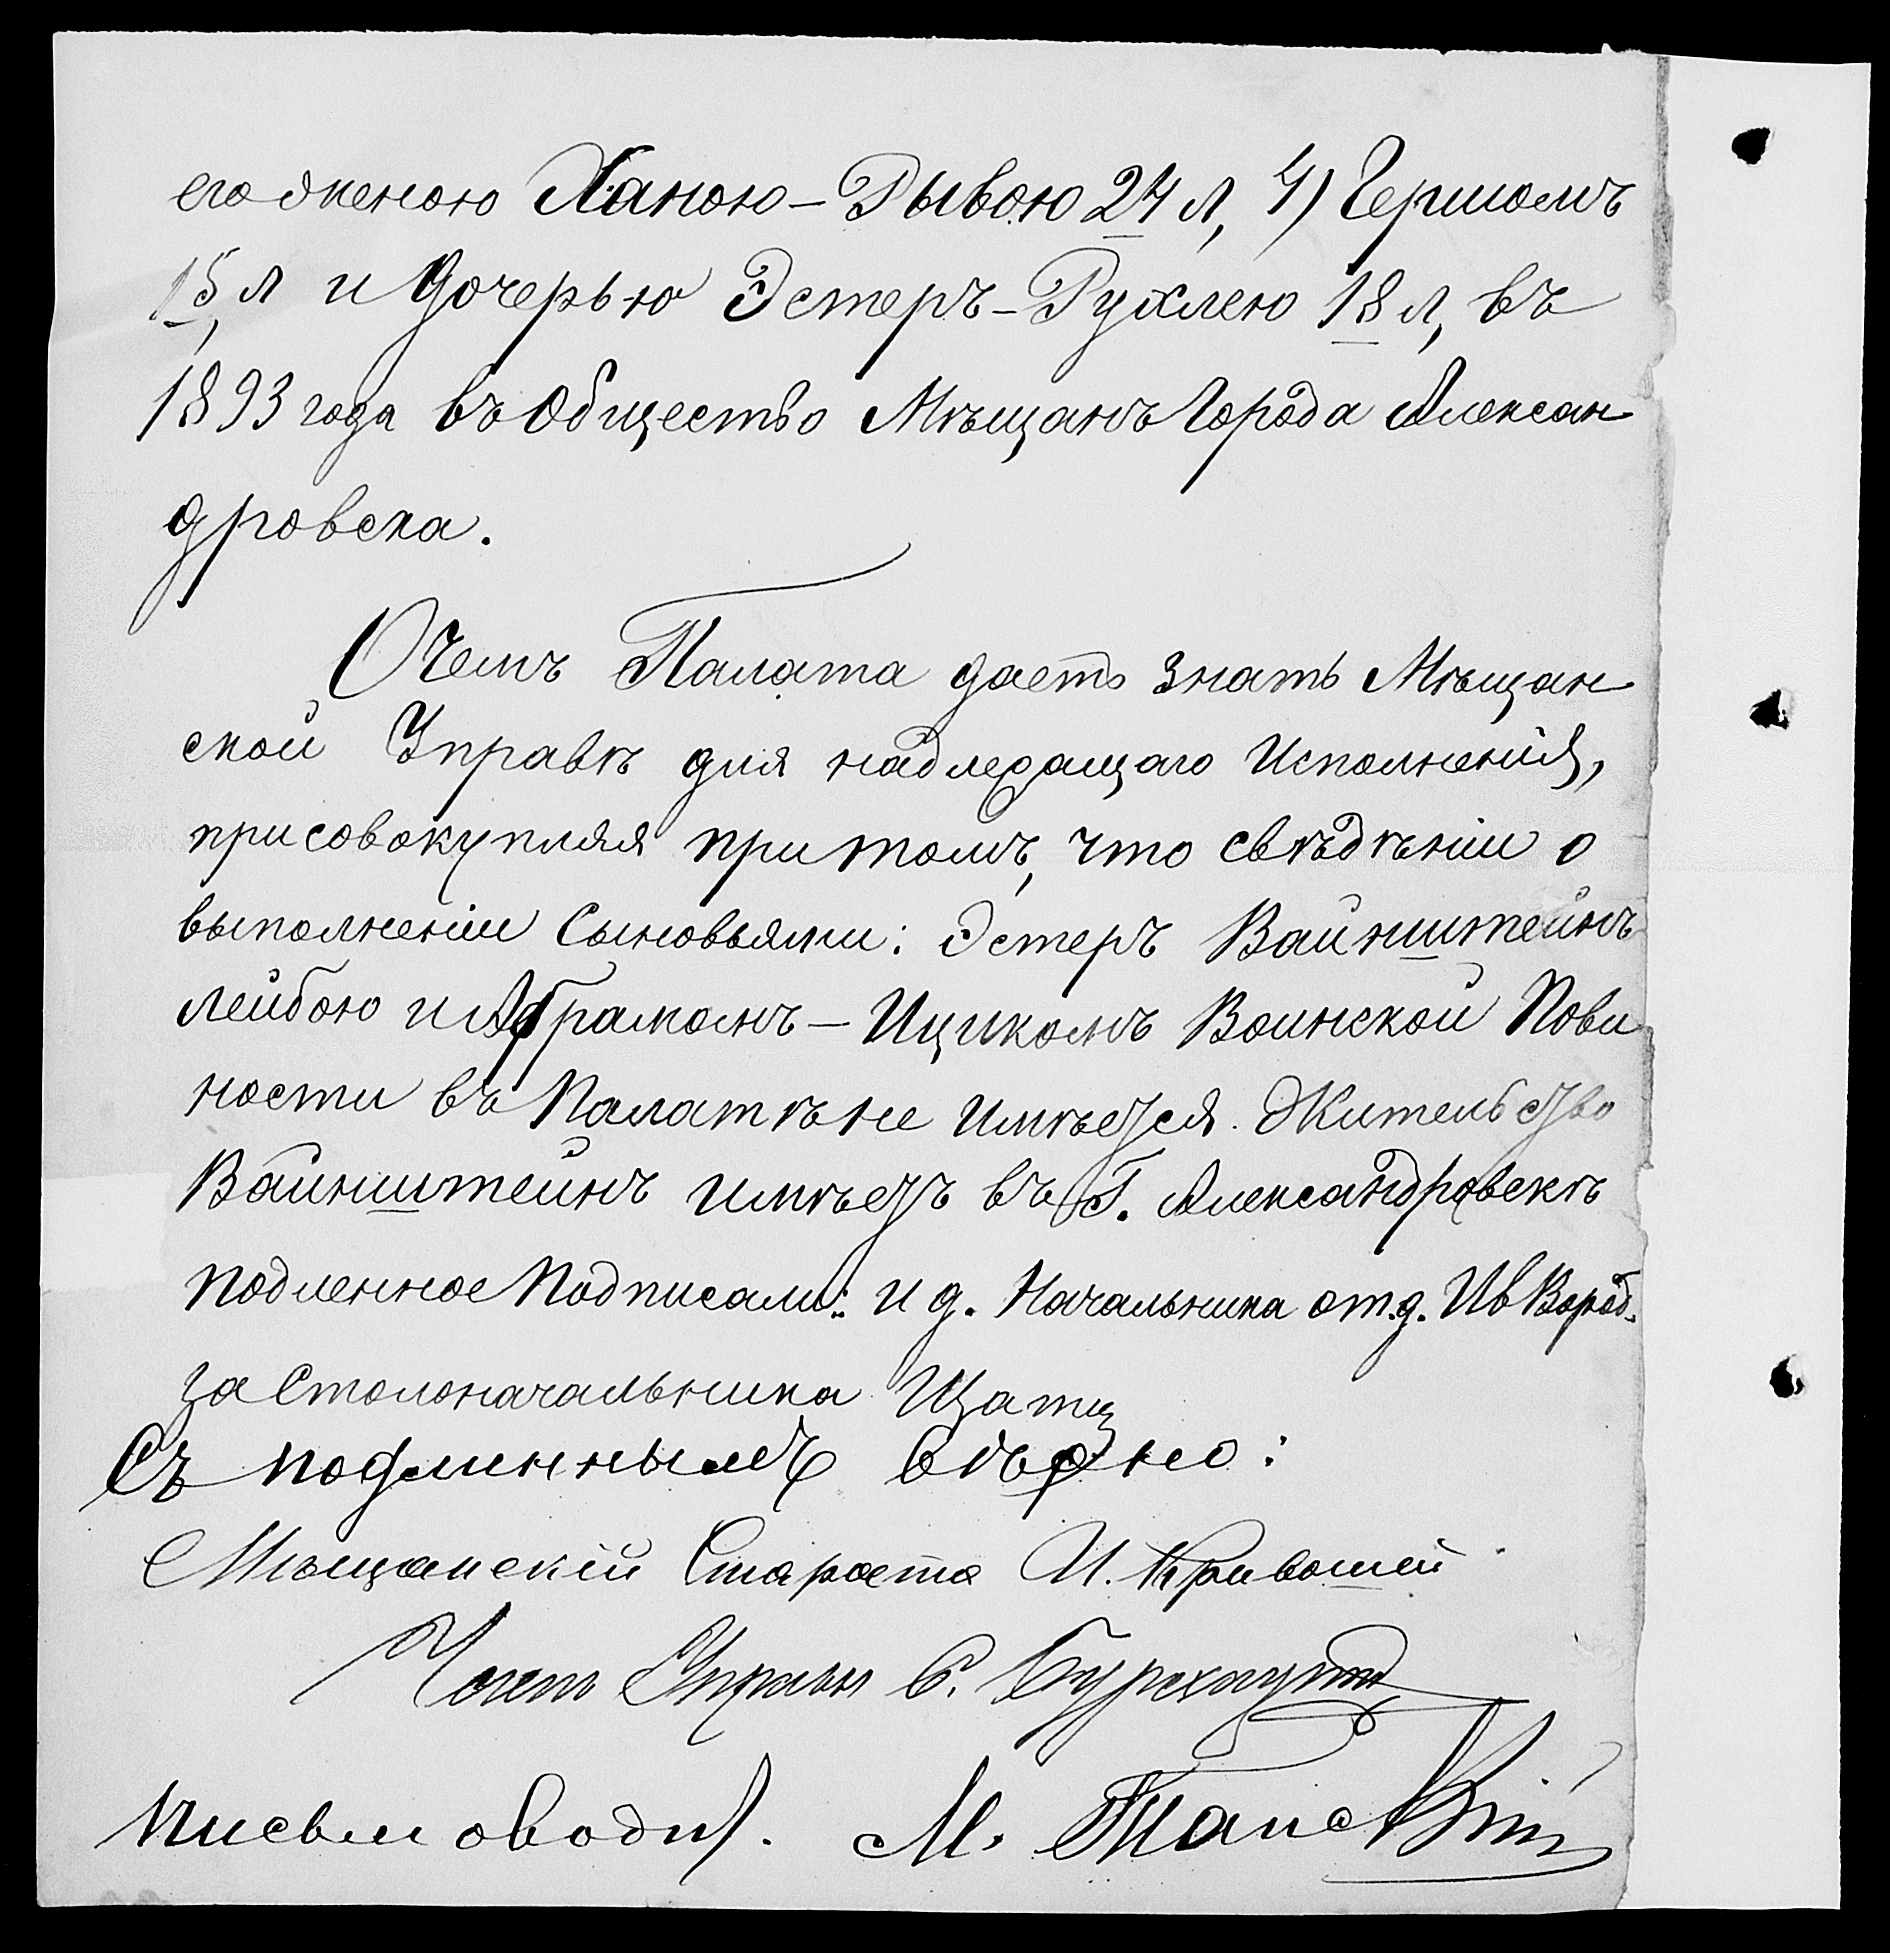 его женою Ханою-Рывою 24 л, 4) Гершомъ
15, л и Дочерью Эстеръ-Рухлею 18 л, въ
1893 года въ Общество Мѣщанъ Города Алексан
дровска.
О чемъ Палата даетъ знать Мѣщан
ской Управѣ для надлежащаго Исполненія,
присовокупляя при томъ, что свѣдѣніи о
выполненіи Сыновьями: Эстеръ Вайнштейнъ
Лейбою и Абрамомъ-Ицикомъ Воинской Пови
ности въ Палатѣ не имѣется. Жительство
Вайнштейнъ имѣетъ въ Г. Александровскѣ
Подленное Подписали: и д. Начальника отд. Ив Вород.
за Столоначальника Щатц
Съ подлиннымъ вѣрно:
Мѣщанскій Староста И. Кривошей
Членъ Управы С.
Письмоводит. М.